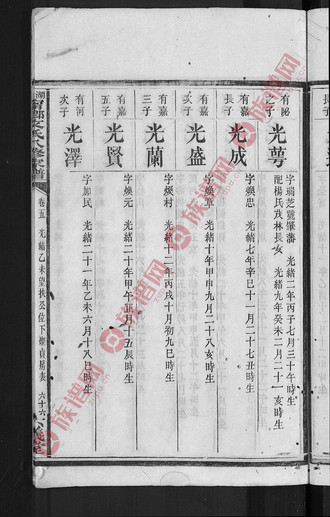 有祕之子
光萼
字瑞芝號肇藩 光緒二年丙子七月三十午時生
配楊氏茂林長女 光緒九年癸未二月二十一亥時生
有嘉長子
光成
字煥忠 光緒七年辛巳十一月二十七丑時生
有嘉次子
光盛
字煥章 光緒十年甲申九月二十八亥時生
有嘉三子
光蘭
字煥村 光緒十二年丙戌十月初九巳時生
有嘉五子
光賢
字煥元 光緒二十年甲午正月十五辰時生
有河次子
光澤
字加民 光緒二十一年乙未六月十八巳時生
卷五 光緒乙未 公位下 貞房表 六十六
族谱网